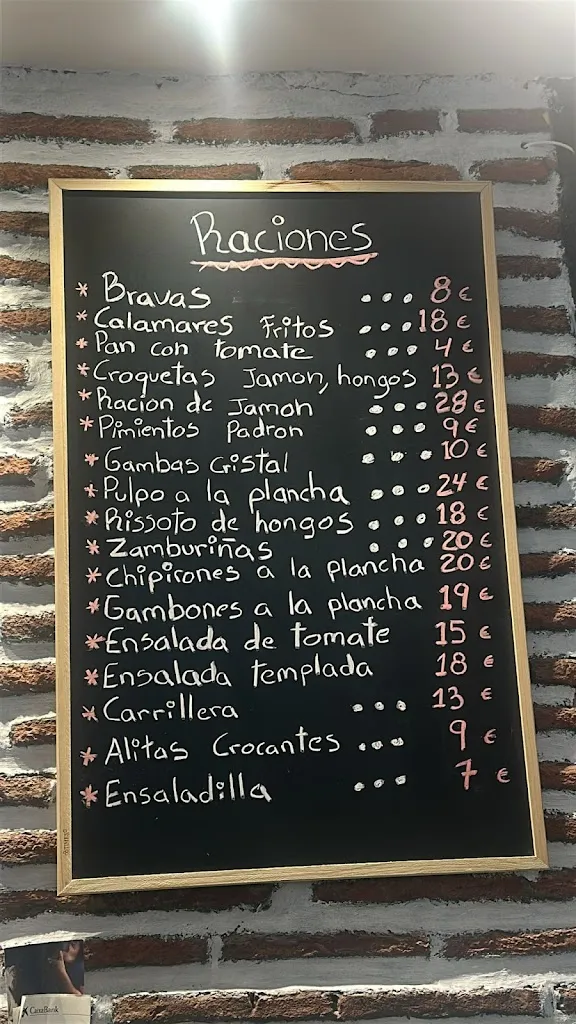 Raciones
* Bravas ... 8 €
* Calamares Fritos ... 18 €
* Pan con tomate ... 4 €
* Croquetas Jamon, hongos 13 €
* Racion de Jamon ... 28 €
* Pimientos Padron ... 9 €
* Gambas Cristal ... 10 €
* Pulpo a la plancha ... 24 €
* Rissoto de hongos ... 18 €
* Zamburiñas ... 20 €
* Chipirones a la plancha 20 €
* Gambones a la plancha 19 €
* Ensalada de tomate 15 €
* Ensalada templada 18 €
* Carrillera ... 13 €
* Alitas Crocantes ... 9 €
* Ensaladilla ... 7 €
CaixaBank